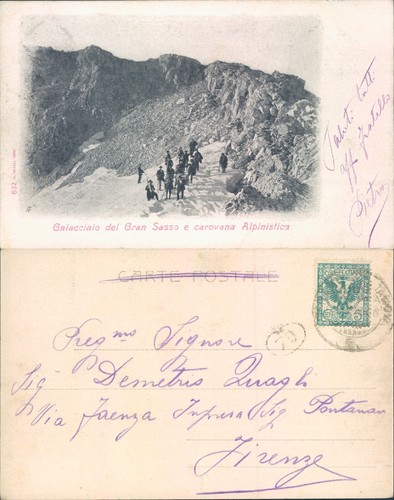 632
Ghiacciaio del Gran Sasso e carovana Alpinistica
Saluti tutti
Aff fratello
Pietro
CARTE POSTALE
Preg.mo Signore
Sig Demetrio Quagli
Via Faenza Impresa Sig Pontanari
Firenze